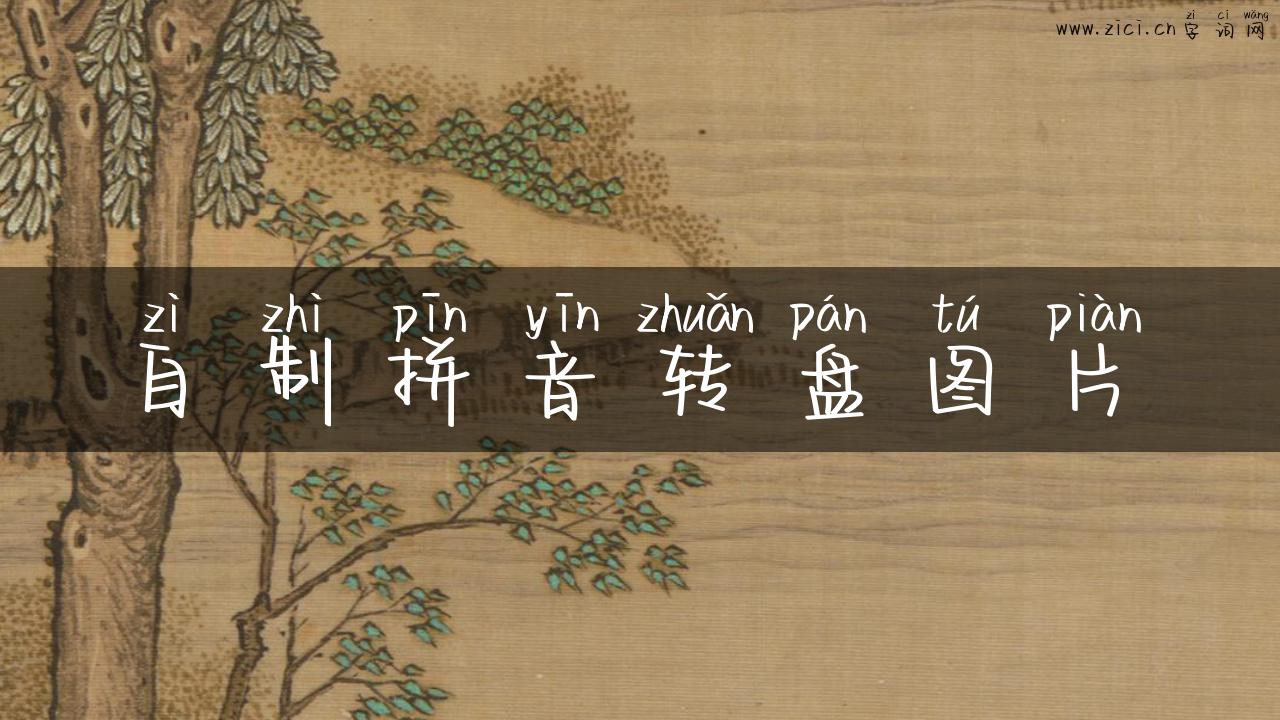 zì cí wǎng
www.zici.cn 字词网
zì zhì pīn yīn zhuǎn pán tú piàn
自制拼音转盘图片